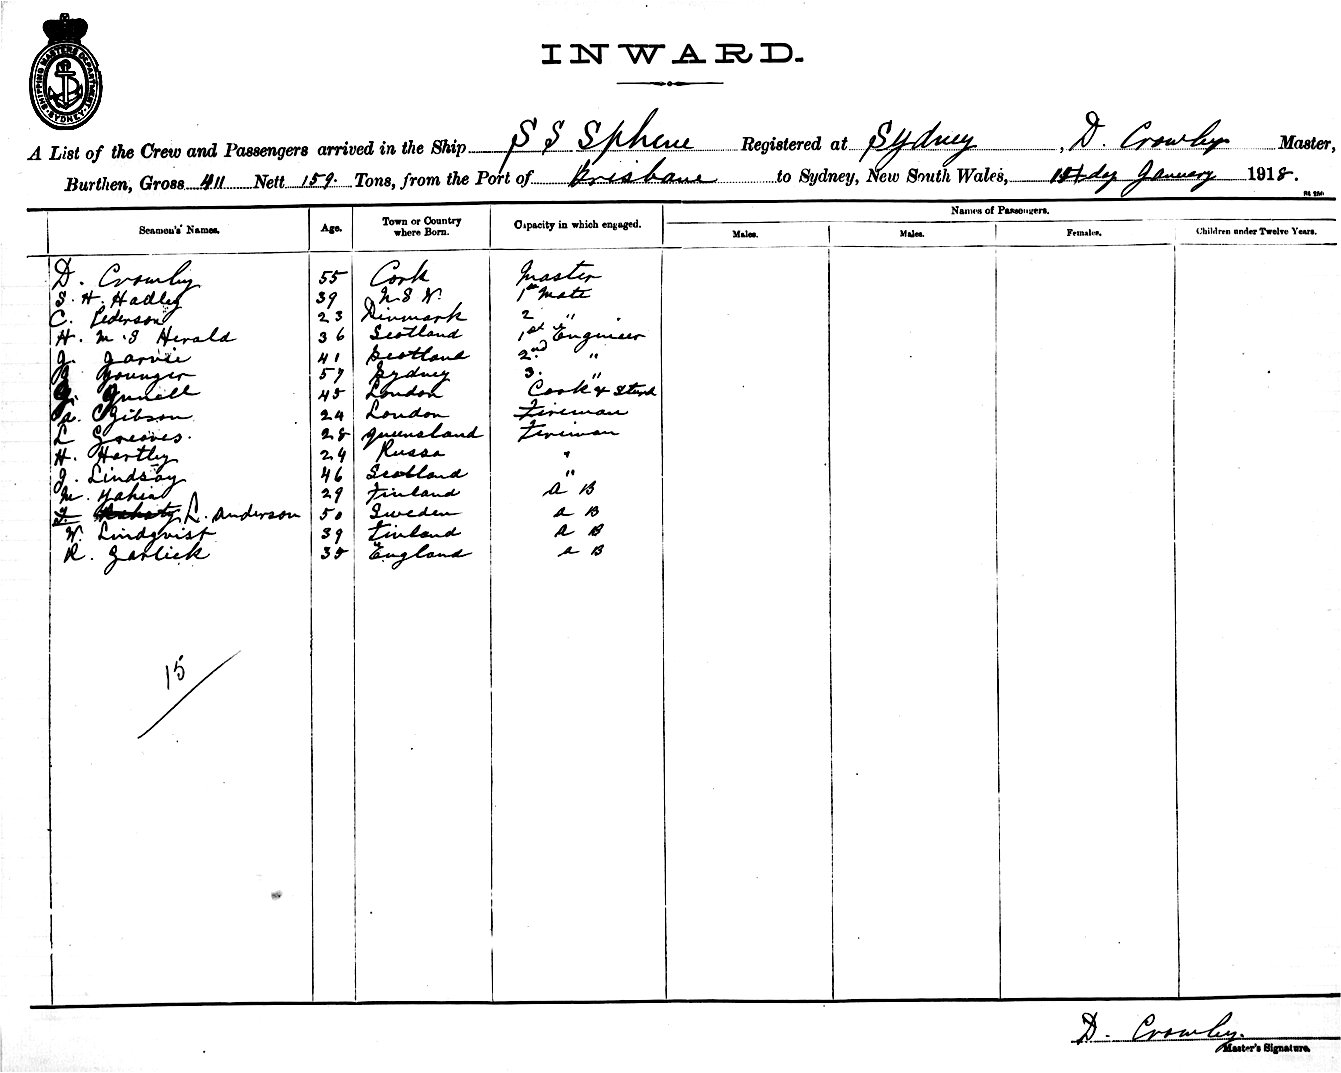 SHIPPING MASTERS DEPARTMENT SYDNEY
INWARD.
A List of the Crew and Passengers arrived in the Ship S S Sphene Registered at Sydney, D. Crowley Master,
Burthen, Gross 411 Nett 159. Tons, from the Port of Brisbane to Sydney, New South Wales, 1st day January 1918.
Seamen's Names. Age. Town or Country where Born. Capacity in which engaged. Names of Passengers.
Males. Males. Females. Children under Twelve Years.
D. Crowley 55 Cork Master
S. H. Hadley 39 N S W. 1st Mate
C. Pederson 23 Dinmark 2 "
H. M. S Herald 36 Scotland 1st Engineer
J. Jarvie 41 Scotland 2nd "
Younger 57 Sydney 3. "
45 London Cook & Stwd
A. Gibson 24 London Fireman
L Greaves. 28 Queensland Fireman
H. Hartley 24 Russa "
J. Lindsay 46 Scotland "
M. 29 Finland A B
L. Anderson 50 Sweden A B
W. Lindqvist 39 Finland A B
R. Garlick 35 England A B
15
D. Crowley.
Master's Signature.